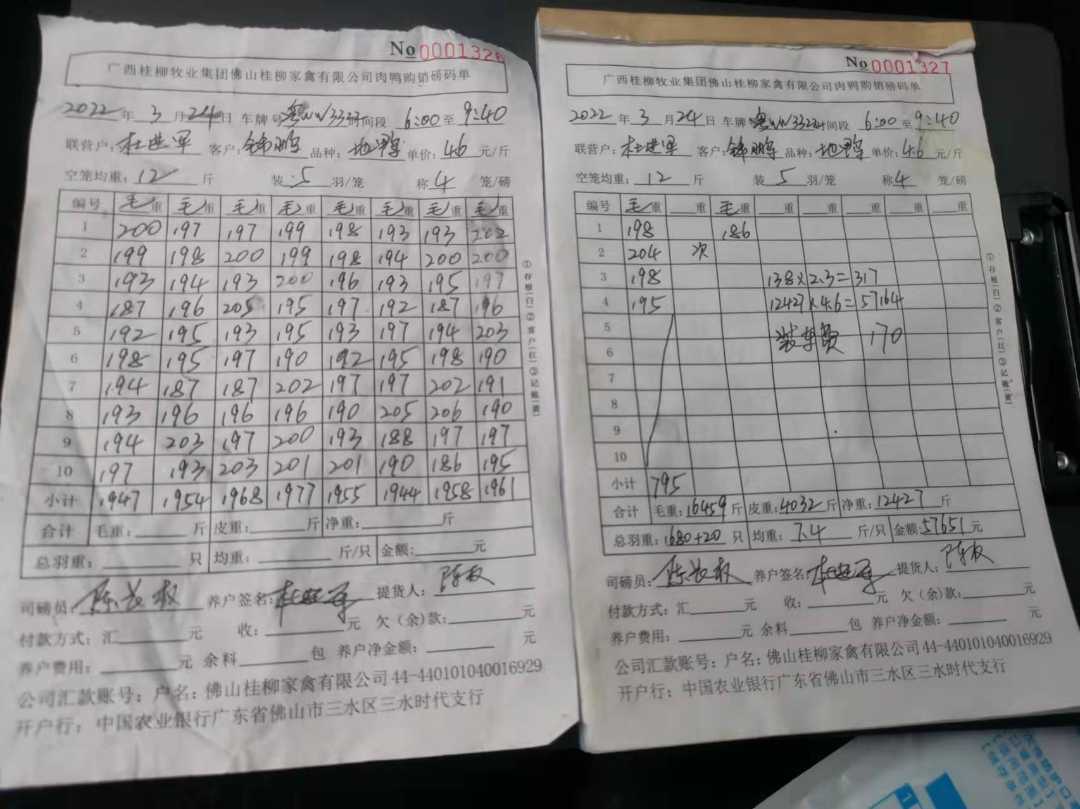 No 0001326
广西桂柳牧业集团佛山桂柳家禽有限公司肉鸭购销磅码单
2022年3月24日 车牌号 时间段 6:00至9:40
联营户:杜进军 客户: 锦鹏 品种:地鸭 单价:4.6元/斤
空笼均重:12斤 装5羽/笼 称4笼/磅
编号 毛重 毛重 毛重 毛重 毛重 毛重 毛重 毛重
1 200 197 197 199 198 193 193 202
2 199 198 200 199 198 194 200 200
3 193 194 193 200 196 193 195 197
4 187 196 205 195 197 192 187 196
5 192 195 193 195 193 197 194 203
6 198 195 197 190 192 195 198 190
7 194 187 187 202 197 197 202 191
8 193 196 196 196 190 205 206 190
9 194 203 197 200 193 188 197 197
10 197 193 203 201 201 190 186 195
小计 1947 1954 1968 1977 1955 1944 1958 1961
合计 毛重: 斤 皮重: 斤 净重: 斤
总羽重: 只 均重: 斤/只 金额: 元
司磅员: 养户签名: 提货人:
付款方式:汇 元 收: 元 欠(余)款: 元
养户费用: 元 余料 包 养户净金额: 元
公司汇款账号:户名:佛山桂柳家禽有限公司44-440101040016929
开户行:中国农业银行广东省佛山市三水区三水时代支行
①存根(白)②客户(红)③记账(黄)
No 0001327
广西桂柳牧业集团佛山桂柳家禽有限公司肉鸭购销磅码单
2022年3月24日 车牌 时间段 6:00至9:40
联营户:杜进军 客户:锦鹏 品种:地鸭 单价:4.6元/斤
空笼均重:12斤 装5羽/笼 称4笼/磅
编号 毛重 重 毛重 重 重 重 重 重
1 198 186
2 204 次
3 198 138×2.3=317
4 195 12427×4.6=57164
5 装车费 170
6
7
8
9
10
小计 795
合计 毛重:16459斤 皮重:4032斤 净重:12427斤
总羽重:1680+20只 均重:7.4斤/只 金额:57651元
司磅员: 养户签名: 提货人:
付款方式:汇 元 收: 元 欠(余)款: 元
养户费用: 元 余料 包 养户净金额: 元
公司汇款账号:户名:佛山桂柳家禽有限公司44-440101040016929
开户行:中国农业银行广东省佛山市三水区三水时代支行
①存根(白)②客户(红)③记账(黄)